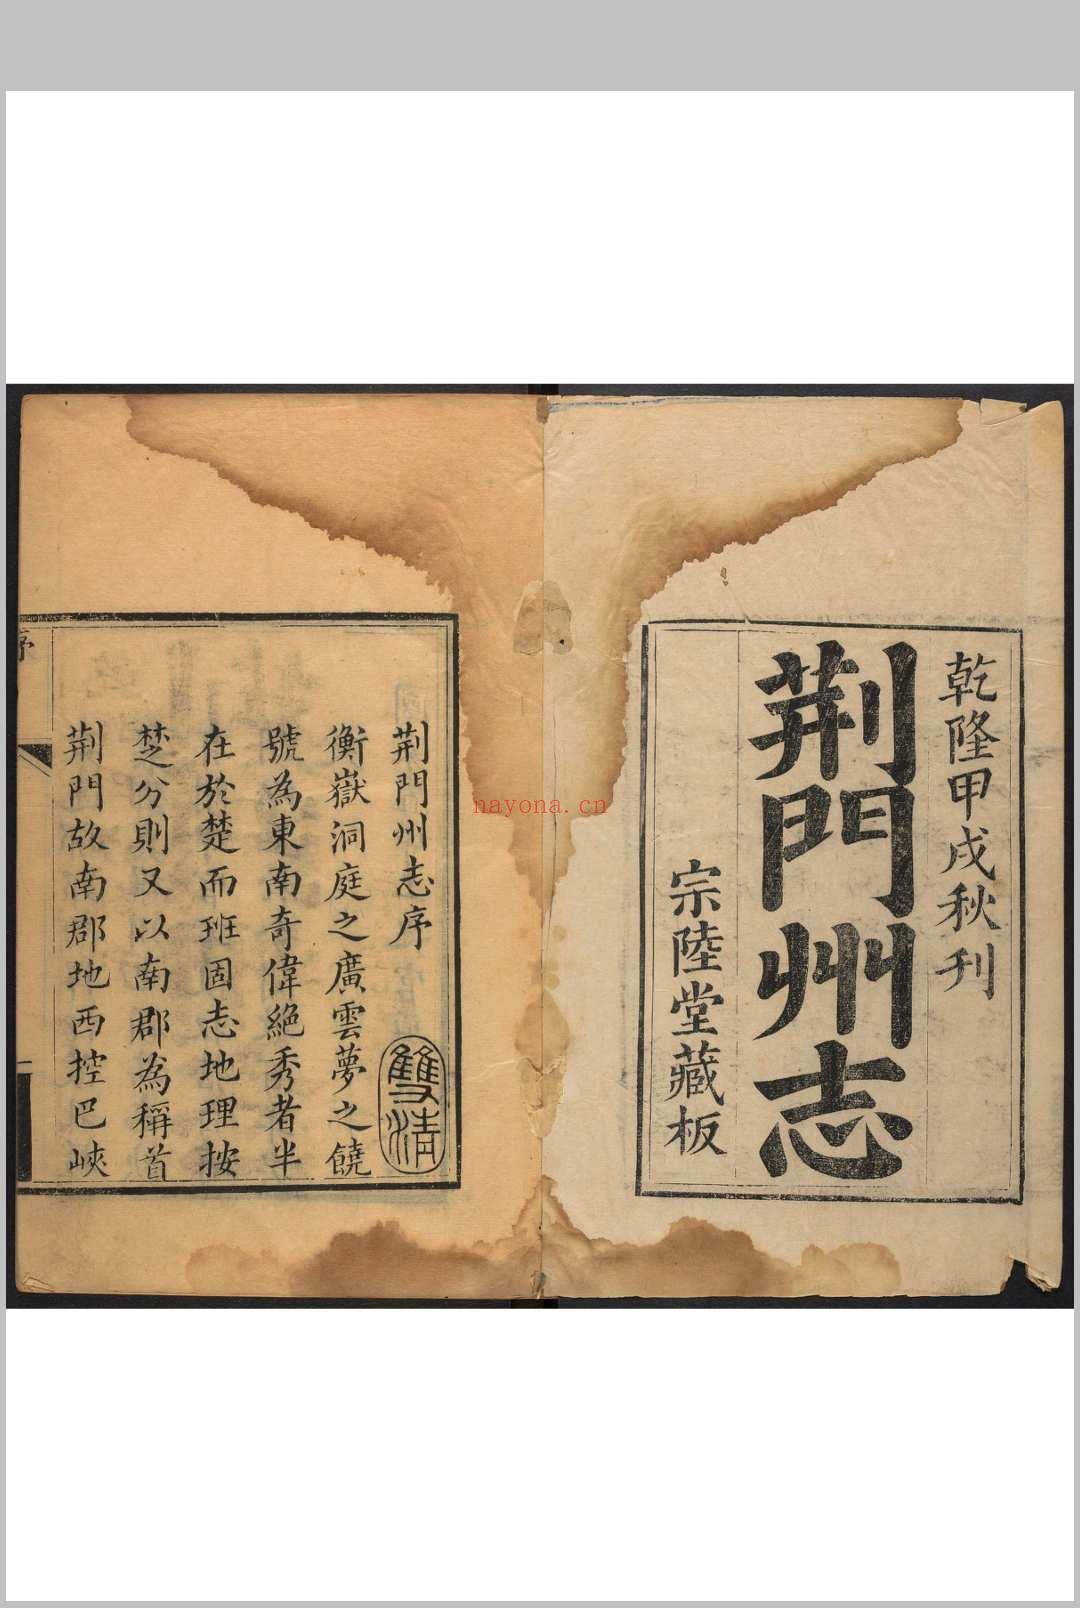 乾隆甲戌秋刊
荆門州志
宗陸堂藏板
荆門州志序
雙清
衡嶽洞庭之廣雲夢之饒
號為東南奇偉絕秀者半
在於楚而班固志地理按
楚分則又以南郡為稱首
荆門故南郡地西控巴峽
序
nayona.cn